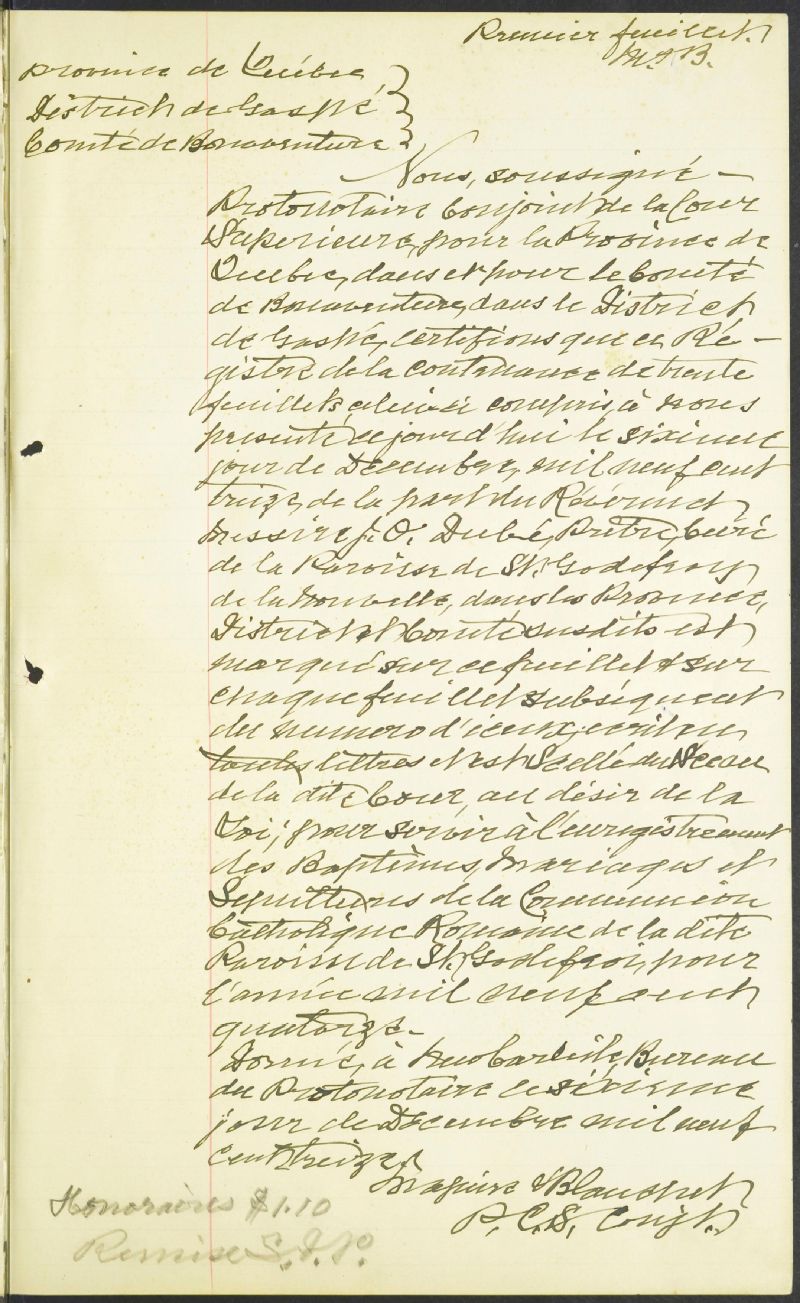 Premier feuillet.
M. & B.
Province de Québec
District de Gaspé
Comté de Bonaventure
Nous, soussigné —
Protonotaire Conjoint de la Cour
Supérieure, pour la Province de
Québec, dans et pour le Comté
de Bonaventure, dans le District
de Gaspé, certifions que ce Ré-
gistre de la contenance de trente
feuillets celui-ci compris, à nous
présenté ce jourd'hui le sixième
jour de Décembre, mil neuf cent
treize, de la part du Révérend
Messire J. O. Dubé, Prêtre, Curé
de la Paroisse de St. Godefroy
de la Nouvelle, dans les Province,
District et Comté susdits est
marqué sur ce feuillet & sur
chaque feuillet subséquent
du numero d'iceux, écrit en
toutes lettres et est Scellé du Sceau
de la dite Cour, au désir de la
Loi, pour servir à l'enregistrement
des Baptêmes, Mariages et
Sépultures de la Communion
Catholique Romaine de la dite
Paroisse de St. Godefroi, pour
l'année mil neuf cent
quatorze.
Donné, à New Carlisle, Bureau
du Protonotaire ce sixième
jour de Décembre mil neuf
cent treize.
Maguire & Blanchet
P. C. S. Conjt.
Honoraires $1.10
Remise